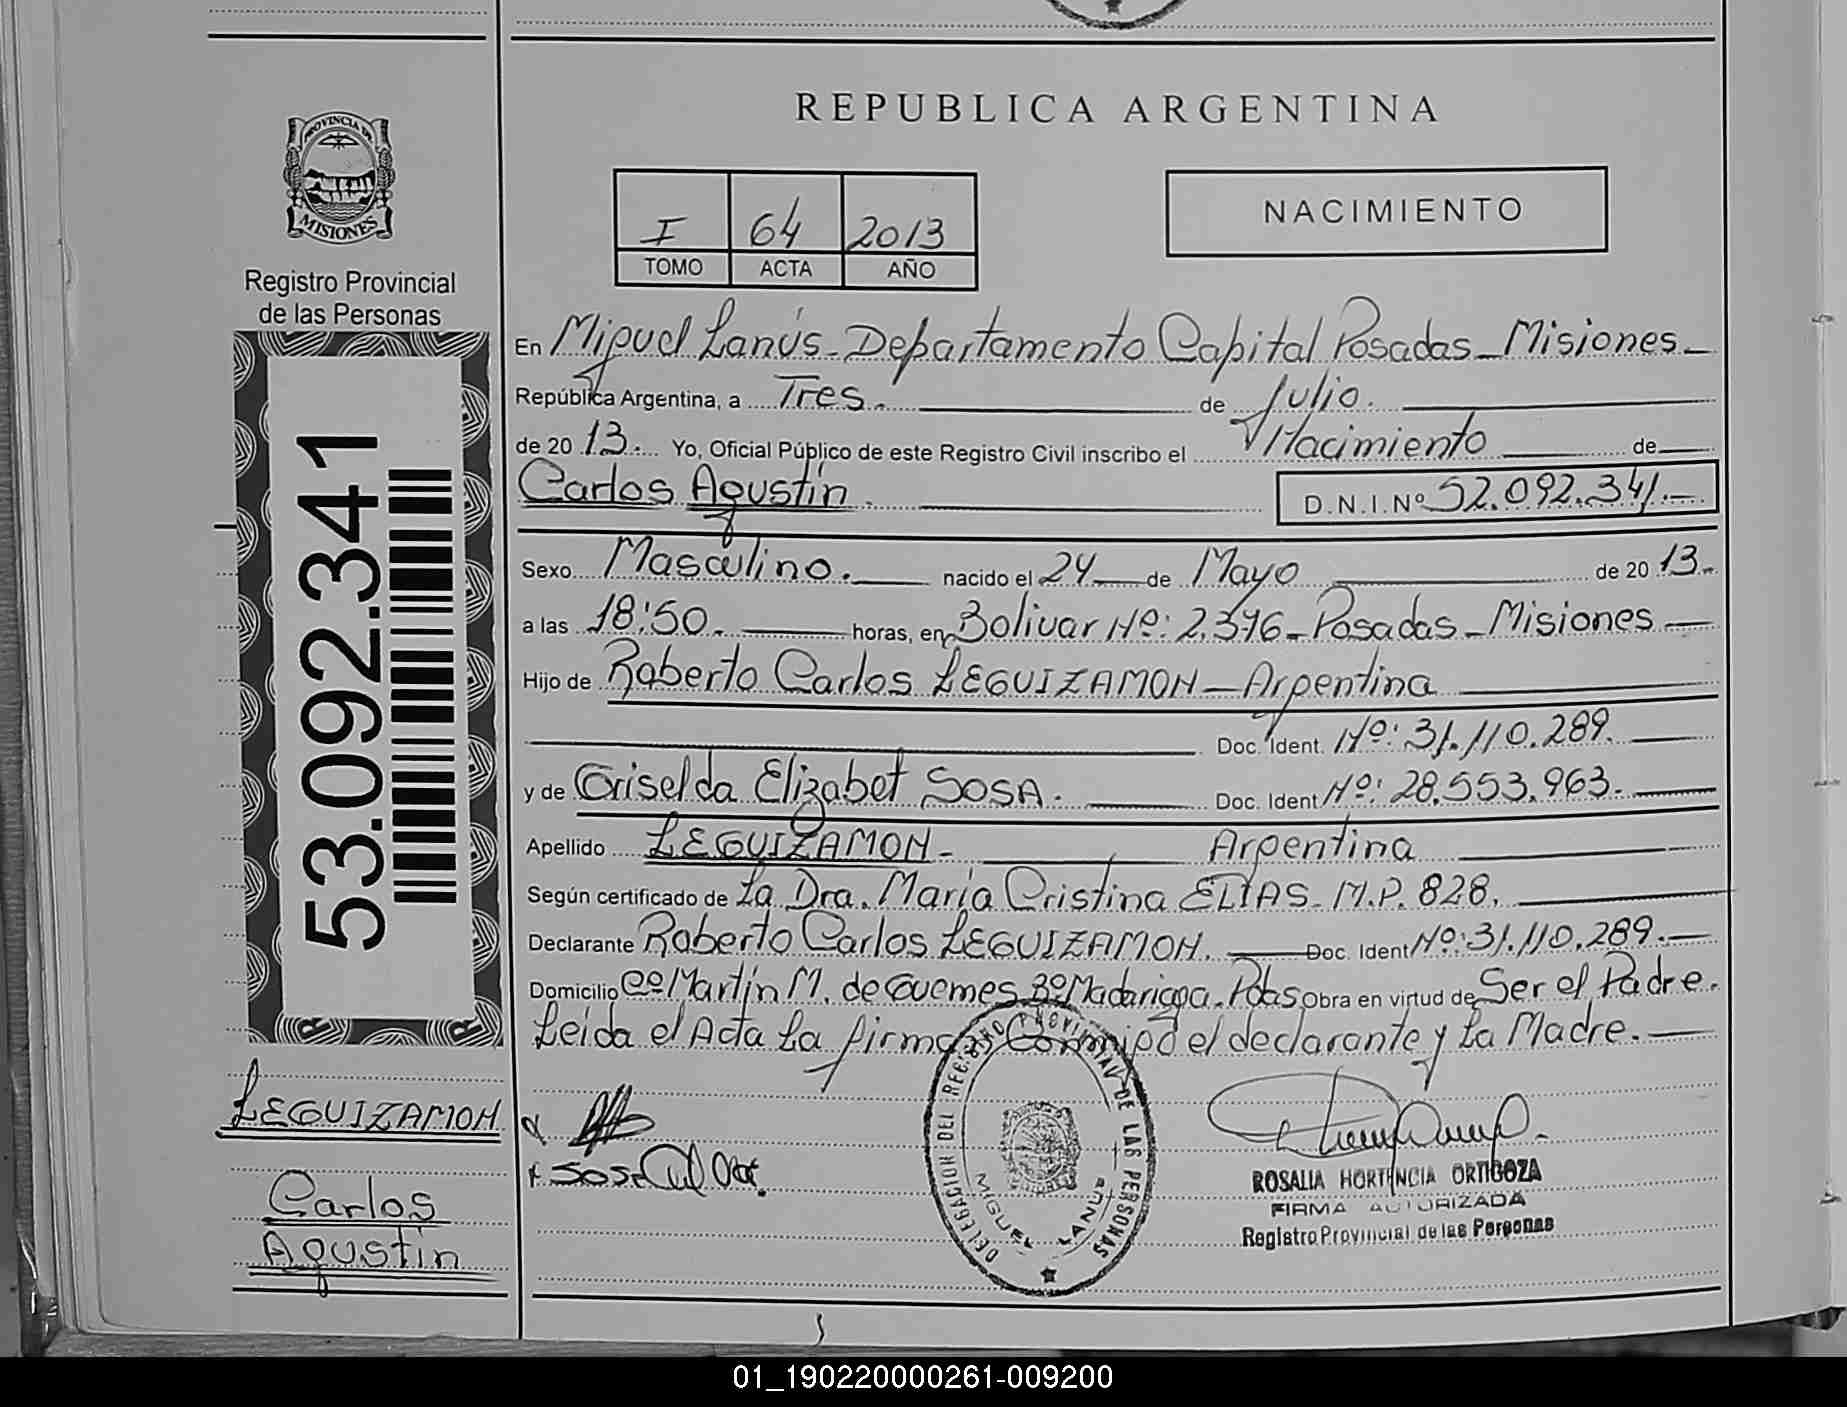 REPUBLICA ARGENTINA
PROVINCIA DE
MISIONES
Registro Provincial
de las Personas
53.092.341
LEGUIZAMON
Carlos
Agustín
I 64 2013
TOMO ACTA AÑO
NACIMIENTO
En Miguel Lanús - Departamento Capital Posadas - Misiones -
República Argentina, a Tres. de Julio.
de 20 13. Yo, Oficial Público de este Registro Civil inscribo el Nacimiento de
Carlos Agustín. D.N.I.Nº 52.092.341.-
Sexo Masculino. nacido el 24 de Mayo de 20 13.-
a las 18:50. horas, en Bolivar Nº: 2.376 - Posadas - Misiones
Hijo de Roberto Carlos LEGUIZAMON - Argentina
Doc. Ident. Nº: 31.110.289.
y de Griselda Elizabet SOSA. Doc. Ident Nº: 28.553.963.
Apellido LEGUIZAMON - Argentina
Según certificado de La Dra. María Cristina ELIAS - M.P. 828.
Declarante Roberto Carlos LEGUIZAMON. Doc. Ident Nº: 31.110.289.
Domicilio Cº Martín M. de Guemes Bº Madariaga. Pdas Obra en virtud de Ser el Padre.
Leida el Acta La firman Conmigo el declarante y La Madre.
DELEGACION DEL REGISTRO PROVINCIAL DE LAS PERSONAS
MIGUEL LANUS
ROSALIA HORTENCIA ORTIGOZA
FIRMA AUTORIZADA
Registro Provincial de las Personas
01_190220000261-009200